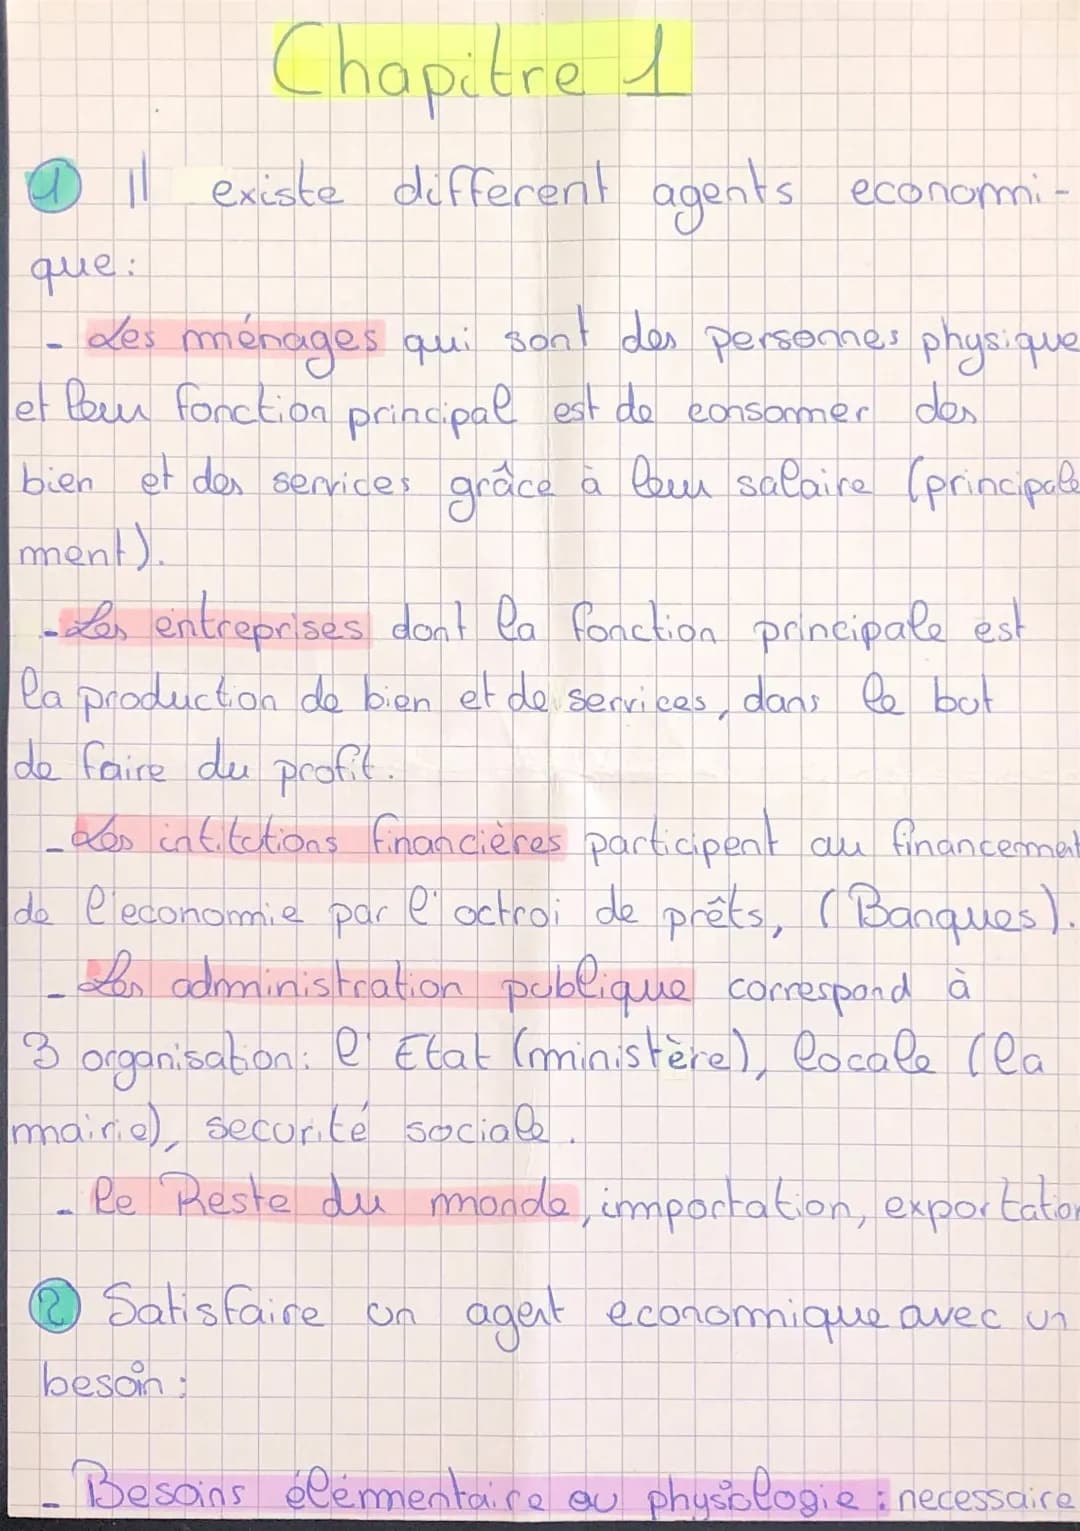 Chapitre 1
1 Il existe different agents economi-
que :
- Les ménages qui sont des personnes physique
et leur fonction principal est de consommer des
bien et des services grâce à leur salaire (principale
ment).
- Les entreprises dont la fonction principale est
la production de bien et de services, dans le but
de faire du profit.
- Les intitutions financières participent au financement
de l'economie par l'octroi de prêts, (Banques).
- Les administration publique correspond à
3 organisation: l'Etat (ministère), locale (la
mairie), securité sociale.
- le Reste du monde, importation, exportation
2 Satisfaire un agent economique avec un
besoin :
- Besoins élémentaire ou physiologie : necessaire